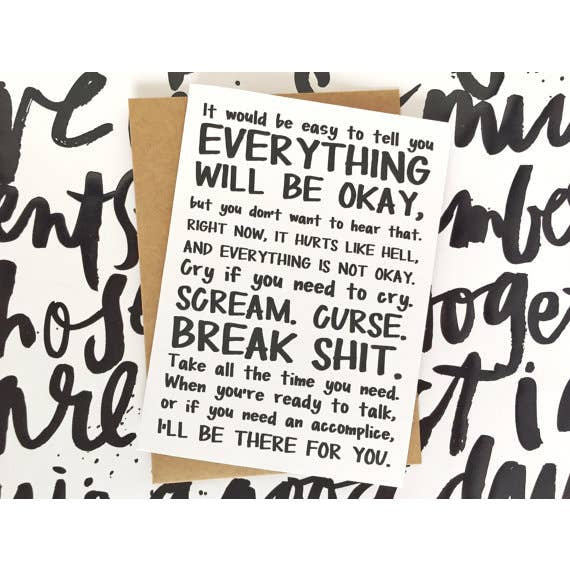 It would be easy to tell you
EVERYTHING
WILL BE OKAY,
but you don't want to hear that.
RIGHT NOW, IT HURTS LIKE HELL,
AND EVERYTHING IS NOT OKAY.
Cry if you need to cry.
SCREAM. CURSE.
BREAK SHIT.
Take all the time you need.
When you're ready to talk,
or if you need an accomplice,
I'LL BE THERE FOR YOU.